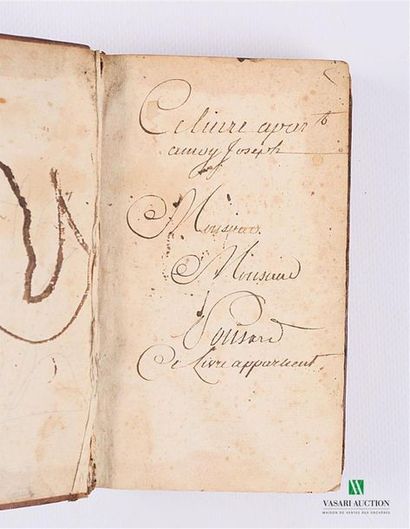 Ce livre apar^t
amoy Joseph
Monsieur
Monsieur
Ponsard
Ce Livre appartient
VASARI AUCTION
MAISON DE VENTES AUX ENCHÈRES